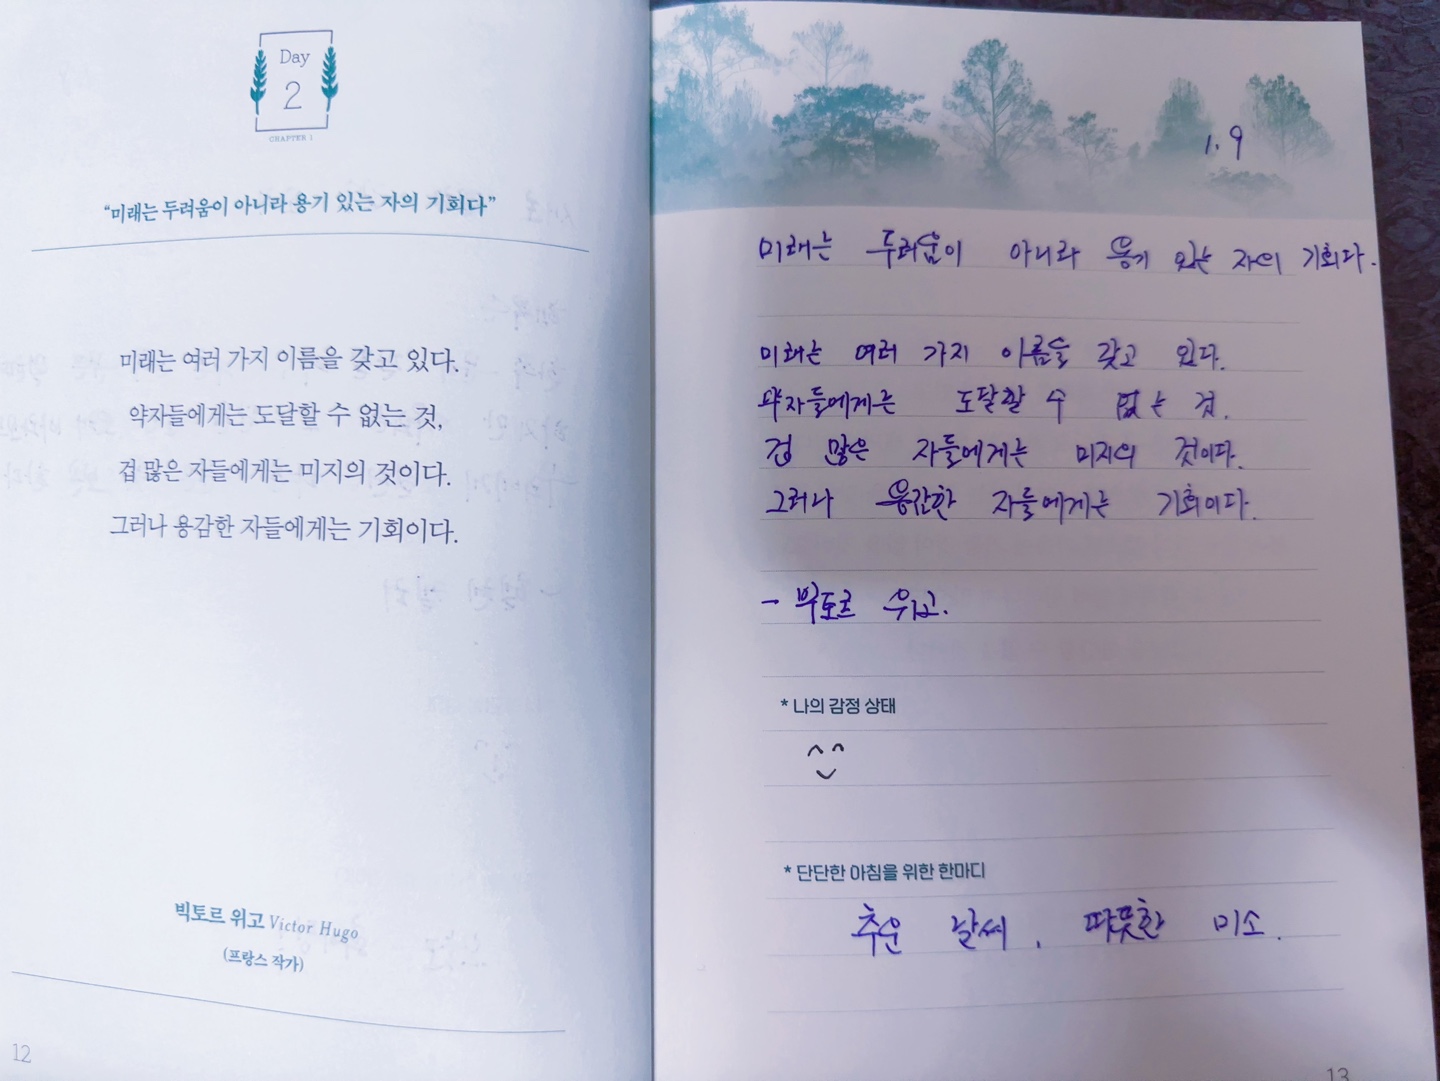 Day
2
CHAPTER 1
“미래는 두려움이 아니라 용기 있는 자의 기회다”
미래는 여러 가지 이름을 갖고 있다.
약자들에게는 도달할 수 없는 것,
겁 많은 자들에게는 미지의 것이다.
그러나 용감한 자들에게는 기회이다.
빅토르 위고 Victor Hugo
(프랑스 작가)
12
1. 9
미래는 두려움이 아니라 용기 있는 자의 기회다.
미래는 여러 가지 이름을 갖고 있다.
약자들에게는 도달할 수 없는 것.
겁 많은 자들에게는 미지의 것이다.
그러나 용감한 자들에게는 기회이다.
- 빅토르 위고.
* 나의 감정 상태
* 단단한 아침을 위한 한마디
추운 날씨, 따뜻한 미소.
13